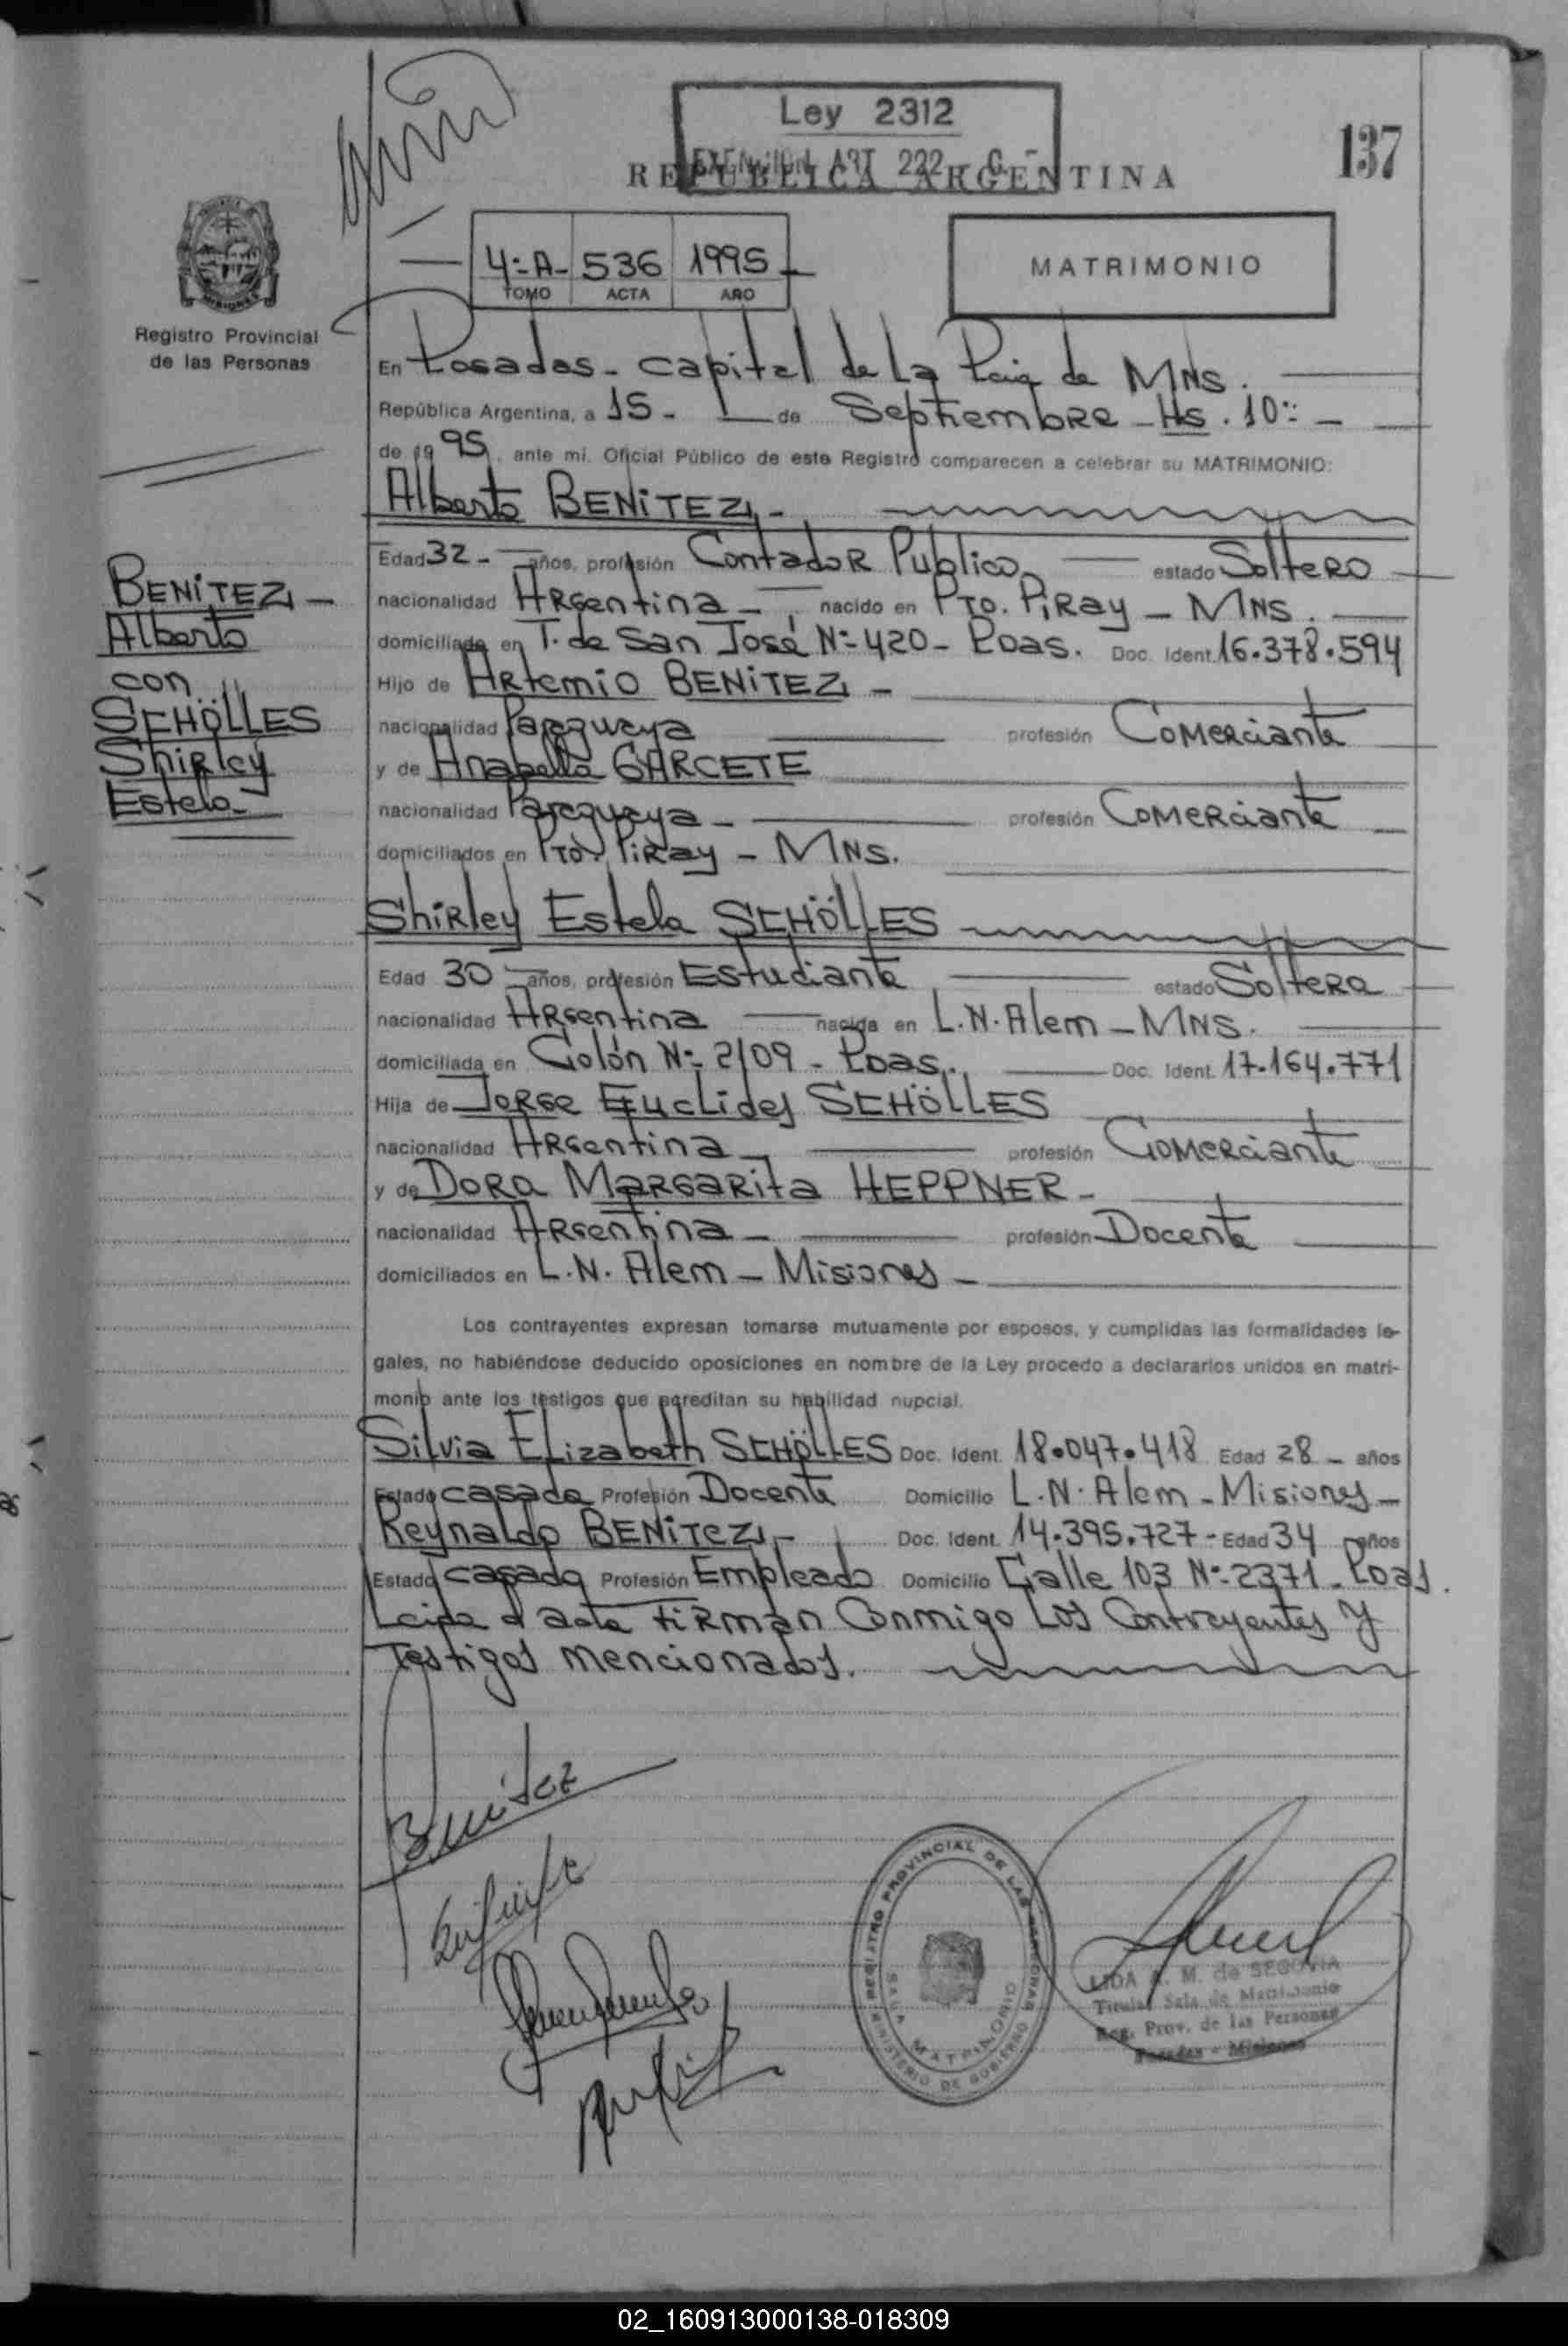 Ley 2312
ART 222
REPUBLICA ARGENTINA
137
4º-A- 536 1995
TOMO ACTA AÑO
MATRIMONIO
MISIONES
Registro Provincial
de las Personas
En Posadas - capital de la Pcia de MNS.
República Argentina, a 15 - de Septiembre - Hs. 10:-
de 1995, ante mí. Oficial Público de este Registro comparecen a celebrar su MATRIMONIO:
Alberto BENITEZ -
Edad 32 - años, profesión Contador Publico estado Soltero
nacionalidad Argentina - nacido en Pto. Piray - MNS.
domiciliado en T. de San José Nº 420 - Pdas. Doc. Ident. 16.378.594
Hijo de Artemio BENITEZ -
nacionalidad Paraguaya profesión Comerciante
y de Anabella GARCETE
nacionalidad Paraguaya - profesión Comerciante
domiciliados en Pto. Piray - MNS.
Shirley Estela SCHÖLLES
Edad 30 - años, profesión Estudiante estado Soltera
nacionalidad Argentina nacida en L.N. Alem - MNS.
domiciliada en Colón Nº 2109 - Pdas. Doc. Ident. 17.164.771
Hija de Jorge Euclides SCHÖLLES
nacionalidad Argentina profesión Comerciante
y de Dora Margarita HEPPNER -
nacionalidad Argentina - profesión Docente
domiciliados en L.N. Alem - Misiones -
Los contrayentes expresan tomarse mutuamente por esposos, y cumplidas las formalidades le-
gales, no habiéndose deducido oposiciones en nombre de la Ley procedo a declararlos unidos en matri-
monio ante los testigos que acreditan su habilidad nupcial.
Silvia Elizabeth SCHÖLLES Doc. Ident. 18.047.418 Edad 28 - años
Estado casada Profesión Docente Domicilio L.N. Alem - Misiones -
Reynaldo BENITEZ - Doc. Ident. 14.395.727 - Edad 34 años
Estado casado Profesión Empleado Domicilio Calle 103 Nº 2371 - Pdas.
Leida el acta firman conmigo los contrayentes y
testigos mencionados.
BENITEZ -
Alberto
con
SCHÖLLES
Shirley
Estela -
Benitez
REGISTRO PROVINCIAL DE LAS PERSONAS
SALA MATRIMONIO
MINISTERIO DE GOBIERNO
LIDA M. de SEGOVIA
Titular Sala de Matrimonio
Reg. Prov. de las Personas
Posadas - Misiones
02_160913000138-018309